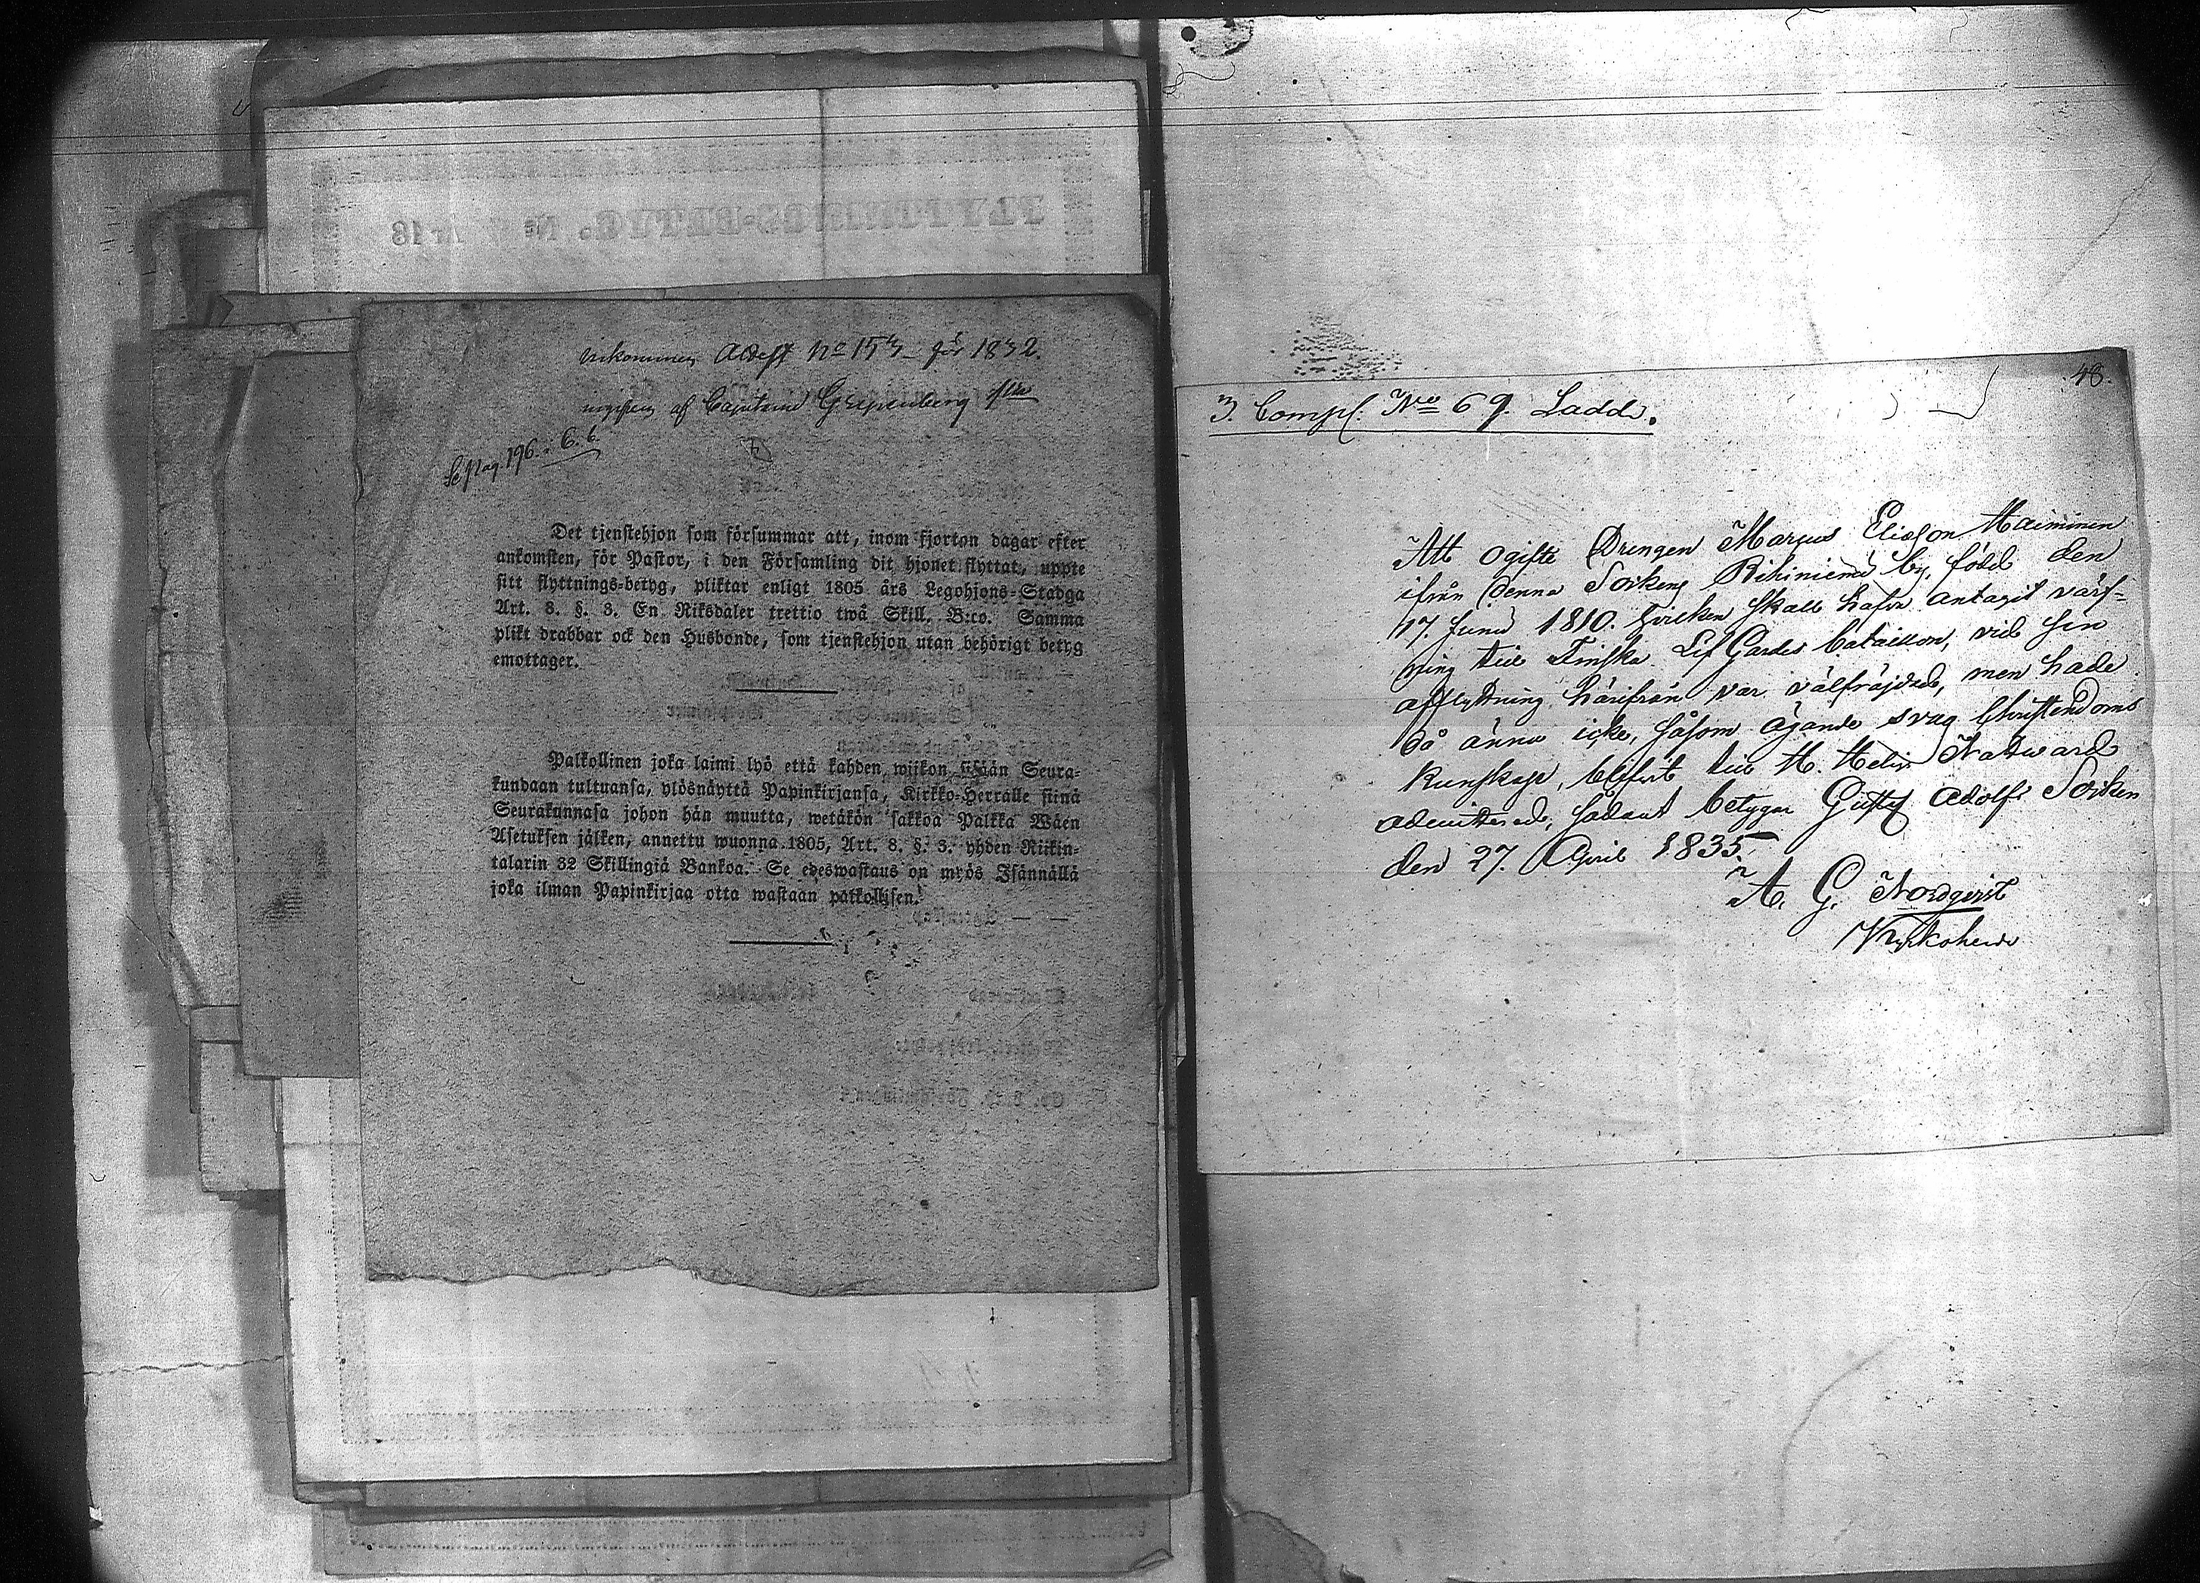 inkommen Attest No 153 för 1832.
ingifven af Capitaine Gripenberg
Se Pag. 196. 6.
Det tjenstehjon som försummar att, inom fjorton dagar efter
ankomsten, för Pastor, i den Församling dit hjonet flyttat, uppte
sitt flyttnings-betyg, pliktar enligt 1805 års Legohjons-Stadga
Art. 8. §. 3. En Riksdaler trettio twå Skill. B:co. Samma
plikt drabbar ock den Husbonde, som tjenstehjon utan behörigt betyg
emottager.
Palkollinen joka laimi lyö että kahden wiikon sisään Seura-
kundaan tultuansa, ylösnäyttä Papinkirjansa, Kirkko-Herralle siinä
Seurakunnasa johon hän muutta, wetäkön sakkoa Palkka Wäen
Asetuksen jälken, annettu wuonna 1805, Art. 8. §. 3. yhden Riikin-
talarin 32 Skillingiä Bankoa. Se edeswastaus on myös Isännällä
joka ilman Papinkirjaa otta wastaan palkollisen.
FLYTTNINGS-BETYG. No År 18
48.
3. Comp. No 69. Ladd.
Att ogifte Drengen Marcus Eliasson Maiminen
ifrån denna Sockens Rihiniemi by, född den
17. Junii 1810. hvilken skall hafva antagit värf-
ning till Finska Lif Gardes bataillon, vid sin
afflyttning härifrån var välfräjdad, men hade
då ännu icke, såsom ägande svag Christendoms
kunskap, blifvit till H. H. Nattward
admitterad, sådant betygar Gustaf Adolfs Socken
den 27. April 1835.
A. G. Nordqvist
Kyrkoherde